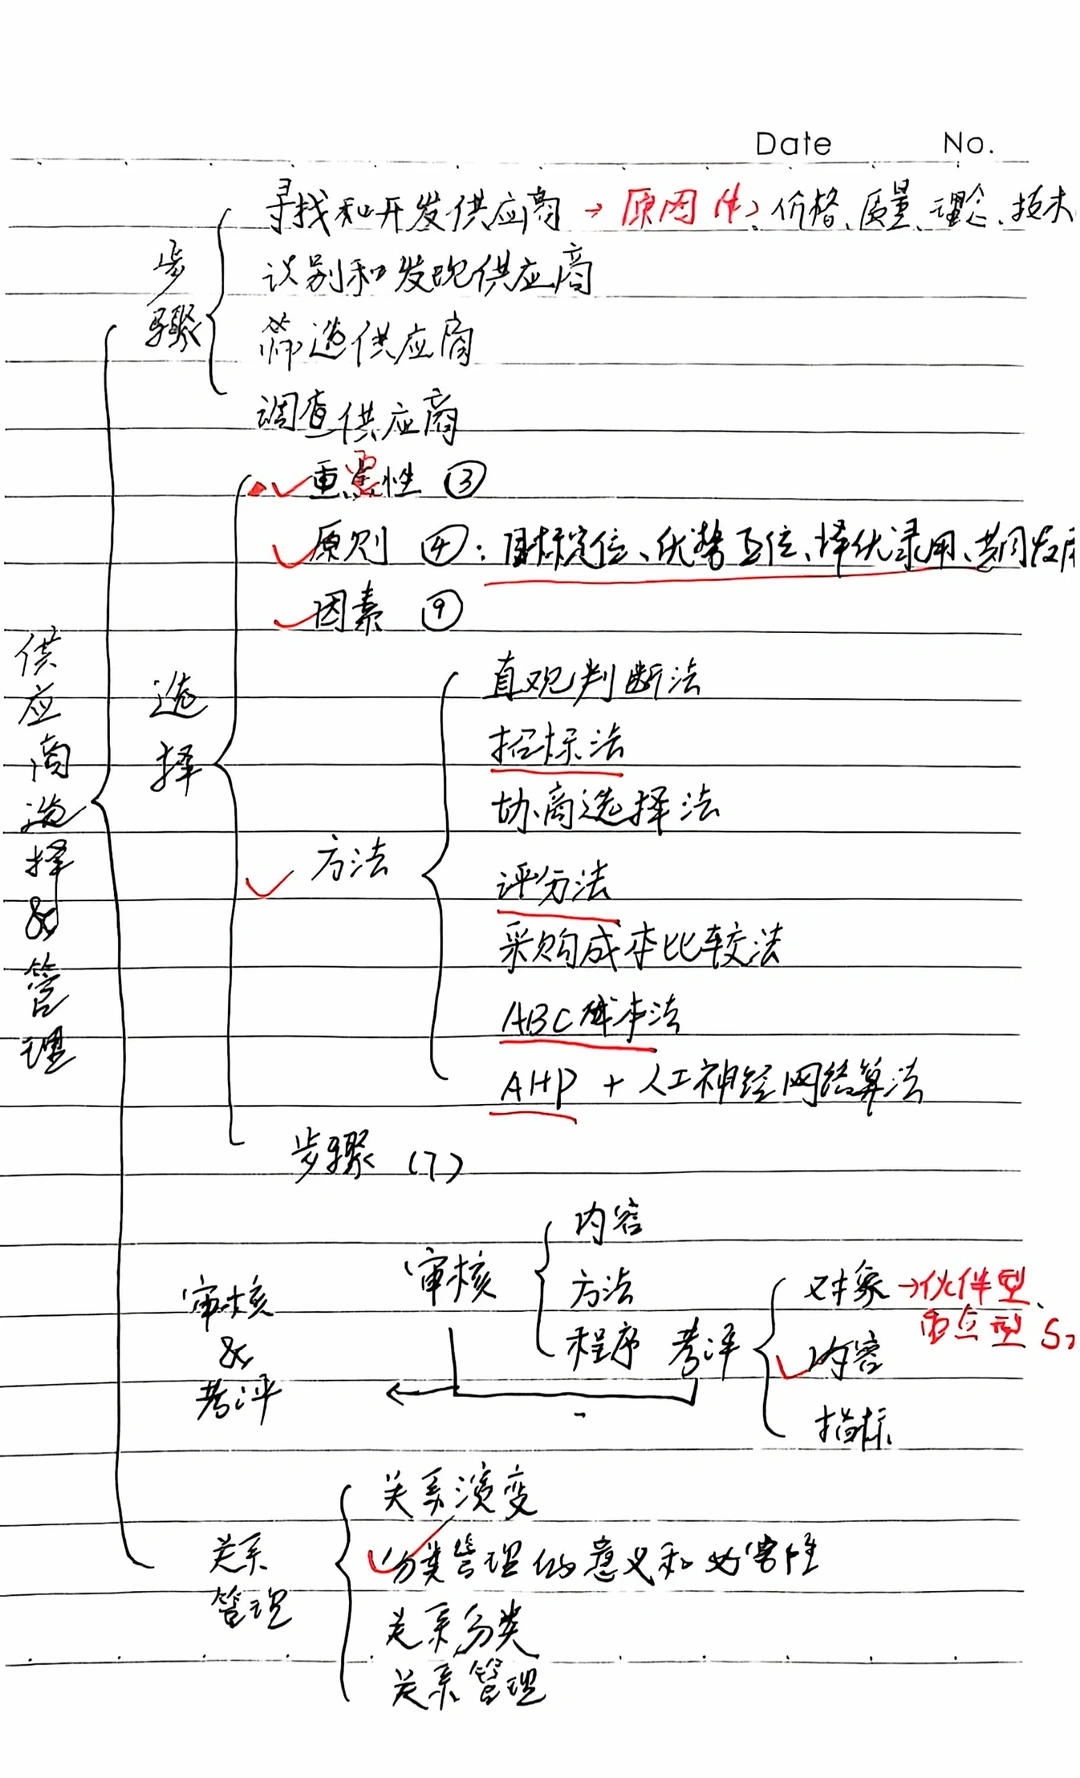 Date No.
寻找和开发供应商 → 原因(4)、价格、质量、理念、技术
识别和发现供应商
步骤
筛选供应商
调查供应商
重要性 ③
原则 ④:目标定位、优势互位、择优录用、共同发展
因素 ⑨
供应商选择&管理
选择
直观判断法
招标法
协商选择法
方法
评分法
采购成本比较法
ABC成本法
AHP + 人工神经网络算法
步骤 (7)
内容
审核
方法
对象→伙伴型、
重点型
审核&考评
程序 考评
内容
指标
关系演变
分类管理的意义和必要性
关系管理
关系分类
关系管理